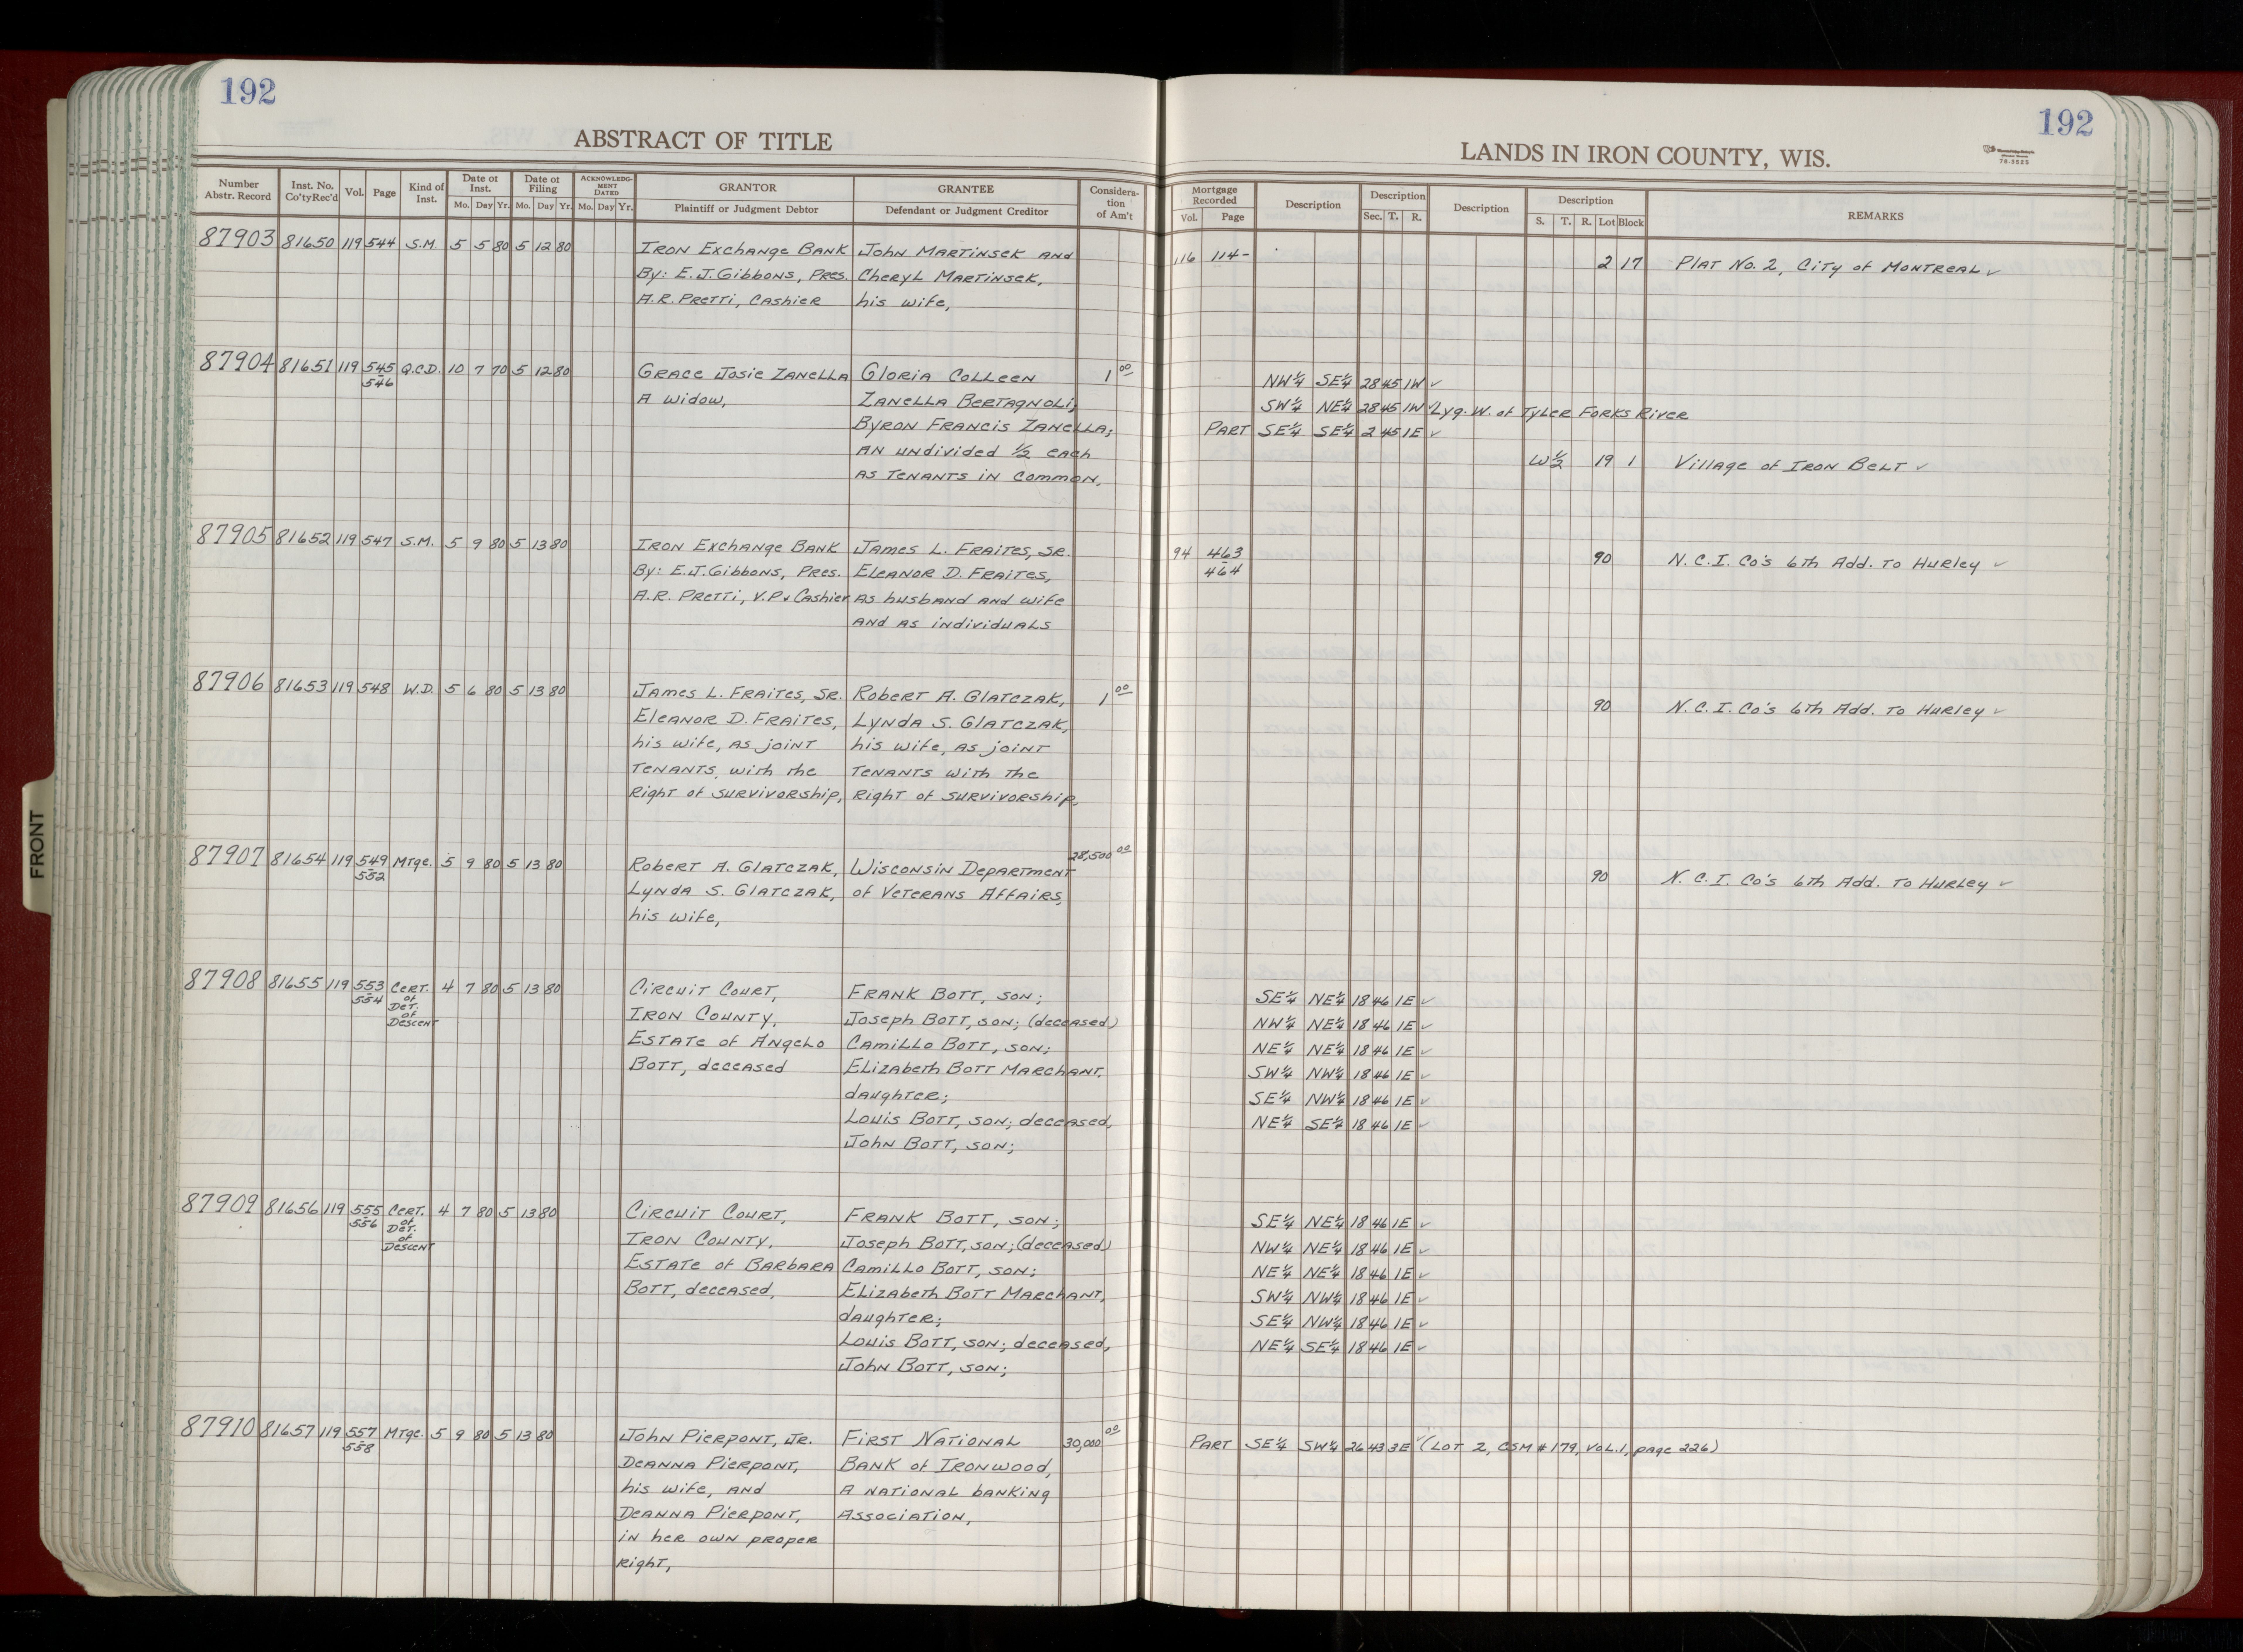 192
ABSTRACT OF TITLE
Number Abstr. Record Inst. No. Co'ty Rec'd Vol. Page Kind of Inst. Date of Inst. Mo. Day Yr. Date of Filing Mo. Day Yr. ACKNOWLEDGMENT DATED Mo. Day Yr. GRANTOR Plaintiff or Judgment Debtor GRANTEE Defendant or Judgment Creditor Consideration of Am't
192
LANDS IN IRON COUNTY, WIS.
78-3525
Mortgage Recorded Vol. Page Description Description Sec. T. R. Description Description S. T. R. Lot Block REMARKS
87903 81650 119 544 S.M. 5 5 80 5 12 80 Iron Exchange Bank John Martinsek and 116 114-
By: E.J. Gibbons, Pres. Cheryl Martinsek, 2 17 Plat No. 2, City of Montreal ✓
A.R. Pretti, Cashier his wife,
87904 81651 119 545 Q.C.D. 10 7 70 5 12 80 Grace Josie Zanella Gloria Colleen 1 00 NW¼ SE¼ 28 45 1W ✓
546 A widow, Zanella Bertagnoli, SW¼ NE¼ 28 45 1W ✓ Lyg. W. of Tyler Forks River
Byron Francis Zanella; PART SE¼ SE¼ 2 45 1E ✓
an undivided ½ each W½ 19 1 Village of Iron Belt ✓
as tenants in common,
87905 81652 119 547 S.M. 5 9 80 5 13 80 Iron Exchange Bank James L. Fraites, Sr. 94 463 90 N.C.I. Co's 6th Add. to Hurley ✓
By: E.J. Gibbons, Pres. Eleanor D. Fraites, 464
A.R. Pretti, V.P. & Cashier as husband and wife
and as individuals
87906 81653 119 548 W.D. 5 6 80 5 13 80 James L. Fraites, Sr. Robert A. Glatczak, 1 00 90 N.C.I. Co's 6th Add. to Hurley ✓
Eleanor D. Fraites, Lynda S. Glatczak,
his wife, as joint his wife, as joint
tenants, with the tenants with the
right of survivorship, right of survivorship,
87907 81654 119 549 Mtge. 5 9 80 5 13 80 Robert A. Glatczak, Wisconsin Department 28,500 00 90 N.C.I. Co's 6th Add. to Hurley ✓
552 Lynda S. Glatczak, of Veterans Affairs,
his wife,
87908 81655 119 553 Cert. 4 7 80 5 13 80 Circuit Court, Frank Bott, son; SE¼ NE¼ 18 46 1E ✓
554 of Det. Iron County, Joseph Bott, son; (deceased) NW¼ NE¼ 18 46 1E ✓
of Descent Estate of Angelo Camillo Bott, son; NE¼ NE¼ 18 46 1E ✓
Bott, deceased Elizabeth Bott Marchant, SW¼ NW¼ 18 46 1E ✓
daughter; SE¼ NW¼ 18 46 1E ✓
Louis Bott, son; deceased, NE¼ SE¼ 18 46 1E ✓
John Bott, son;
87909 81656 119 555 Cert. 4 7 80 5 13 80 Circuit Court, Frank Bott, son; SE¼ NE¼ 18 46 1E ✓
556 of Det. Iron County, Joseph Bott, son; (deceased) NW¼ NE¼ 18 46 1E ✓
of Descent Estate of Barbara Camillo Bott, son; NE¼ NE¼ 18 46 1E ✓
Bott, deceased, Elizabeth Bott Marchant, SW¼ NW¼ 18 46 1E ✓
daughter; SE¼ NW¼ 18 46 1E ✓
Louis Bott, son; deceased, NE¼ SE¼ 18 46 1E ✓
John Bott, son;
87910 81657 119 557 Mtge. 5 9 80 5 13 80 John Pierpont, Jr. First National 30,000 00 PART SE¼ SW¼ 26 43 3E ✓ (Lot 2, CSM #179, Vol. 1, page 226)
558 Deanna Pierpont, Bank of Ironwood,
his wife, and a national banking
Deanna Pierpont, association,
in her own proper
right,
FRONT